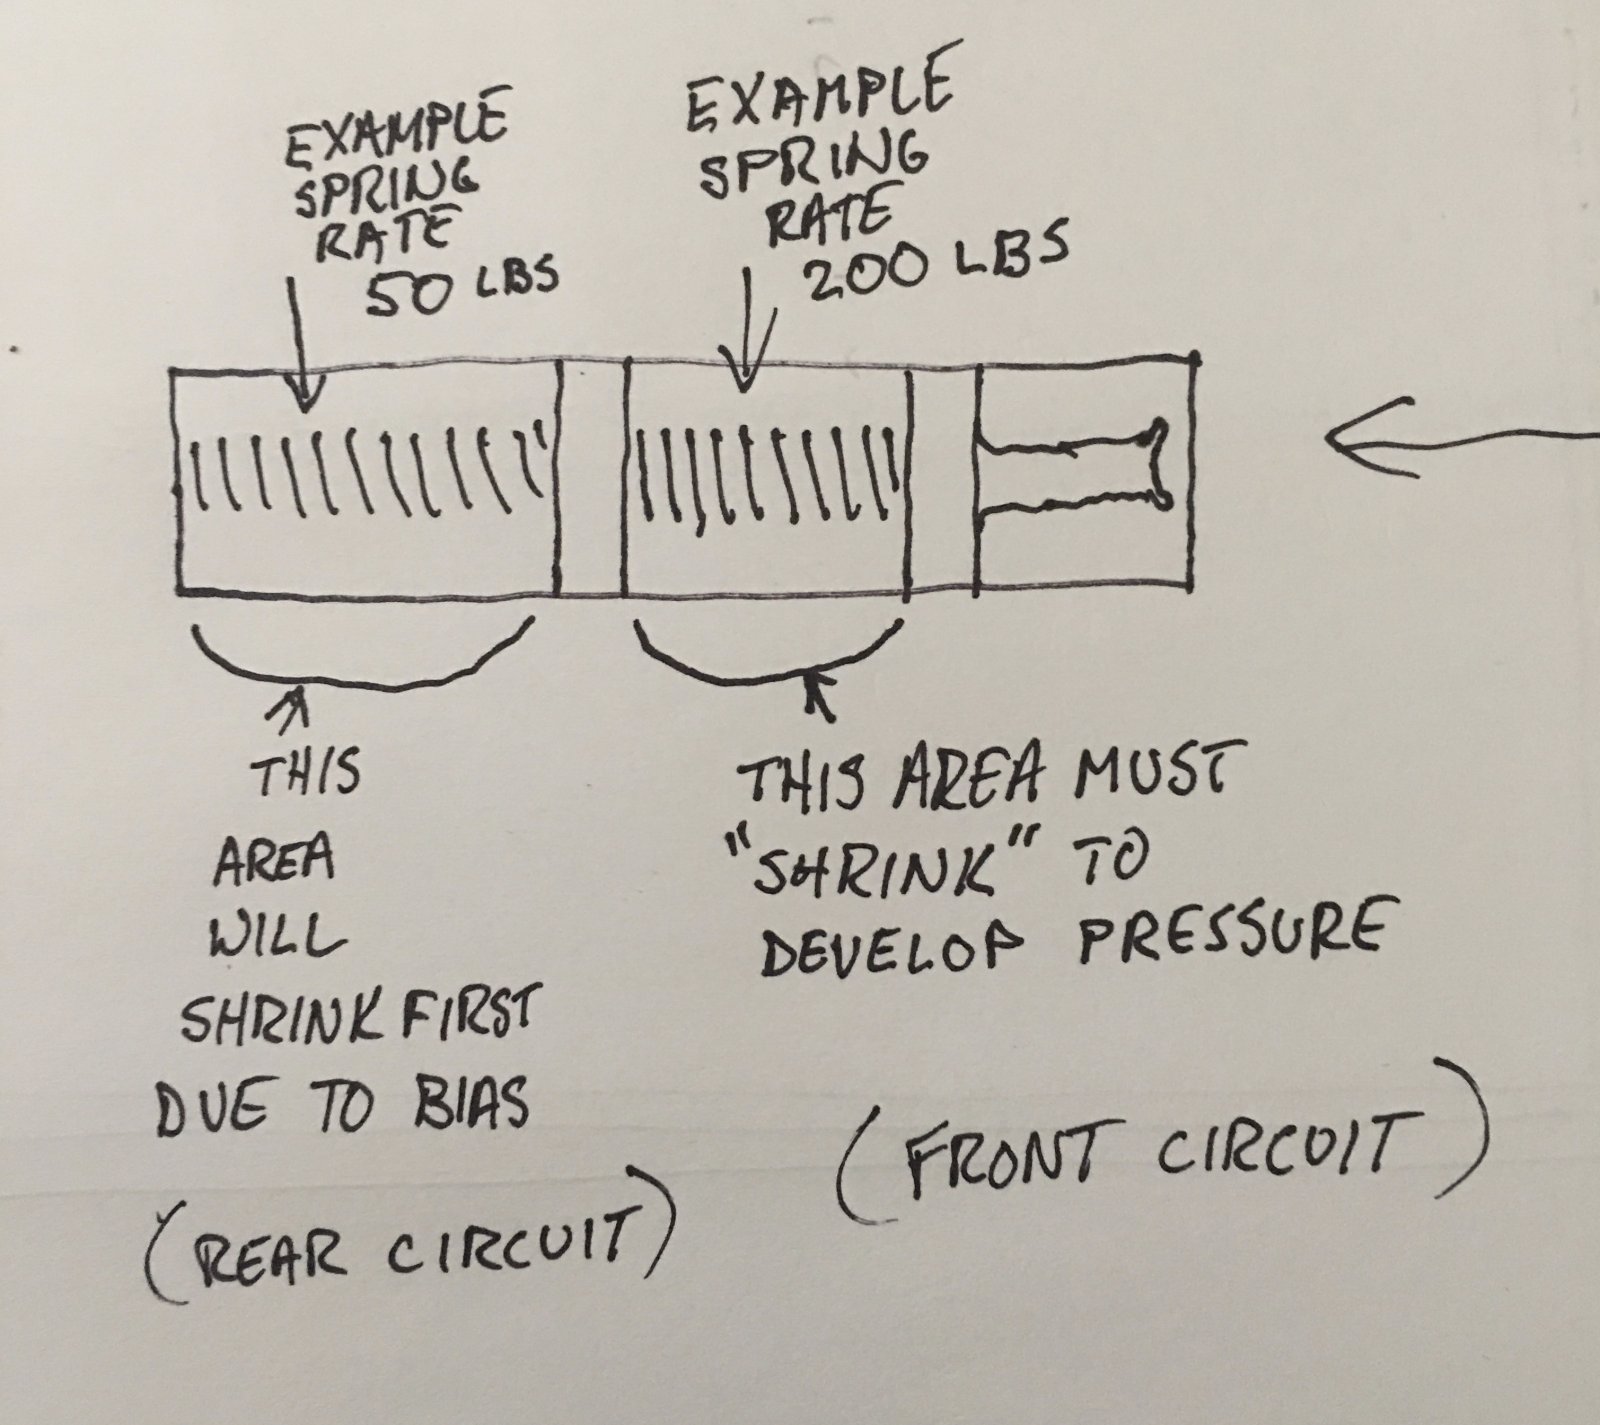 EXAMPLE
SPRING
RATE
50 LBS
EXAMPLE
SPRING
RATE
200 LBS
THIS
AREA
WILL
SHRINK FIRST
DUE TO BIAS
(REAR CIRCUIT)
THIS AREA MUST
"SHRINK" TO
DEVELOP PRESSURE
(FRONT CIRCUIT)